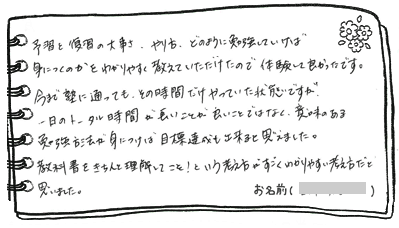 予習と復習の大事さ、やり方、どのように勉強していけば
身につくのかをわかりやすく教えていただけたので体験して良かったです。
今まで塾に通っても、その時間だけやっていた状態ですが、
一日のトータル時間が長いことが良いことではなく、意味のある
勉強方法が身につけば目標達成も出来ると思えました。
教科書をきちんと理解してこそ!という考え方がすごくわかりやすい考え方だと
思いました。
お名前(